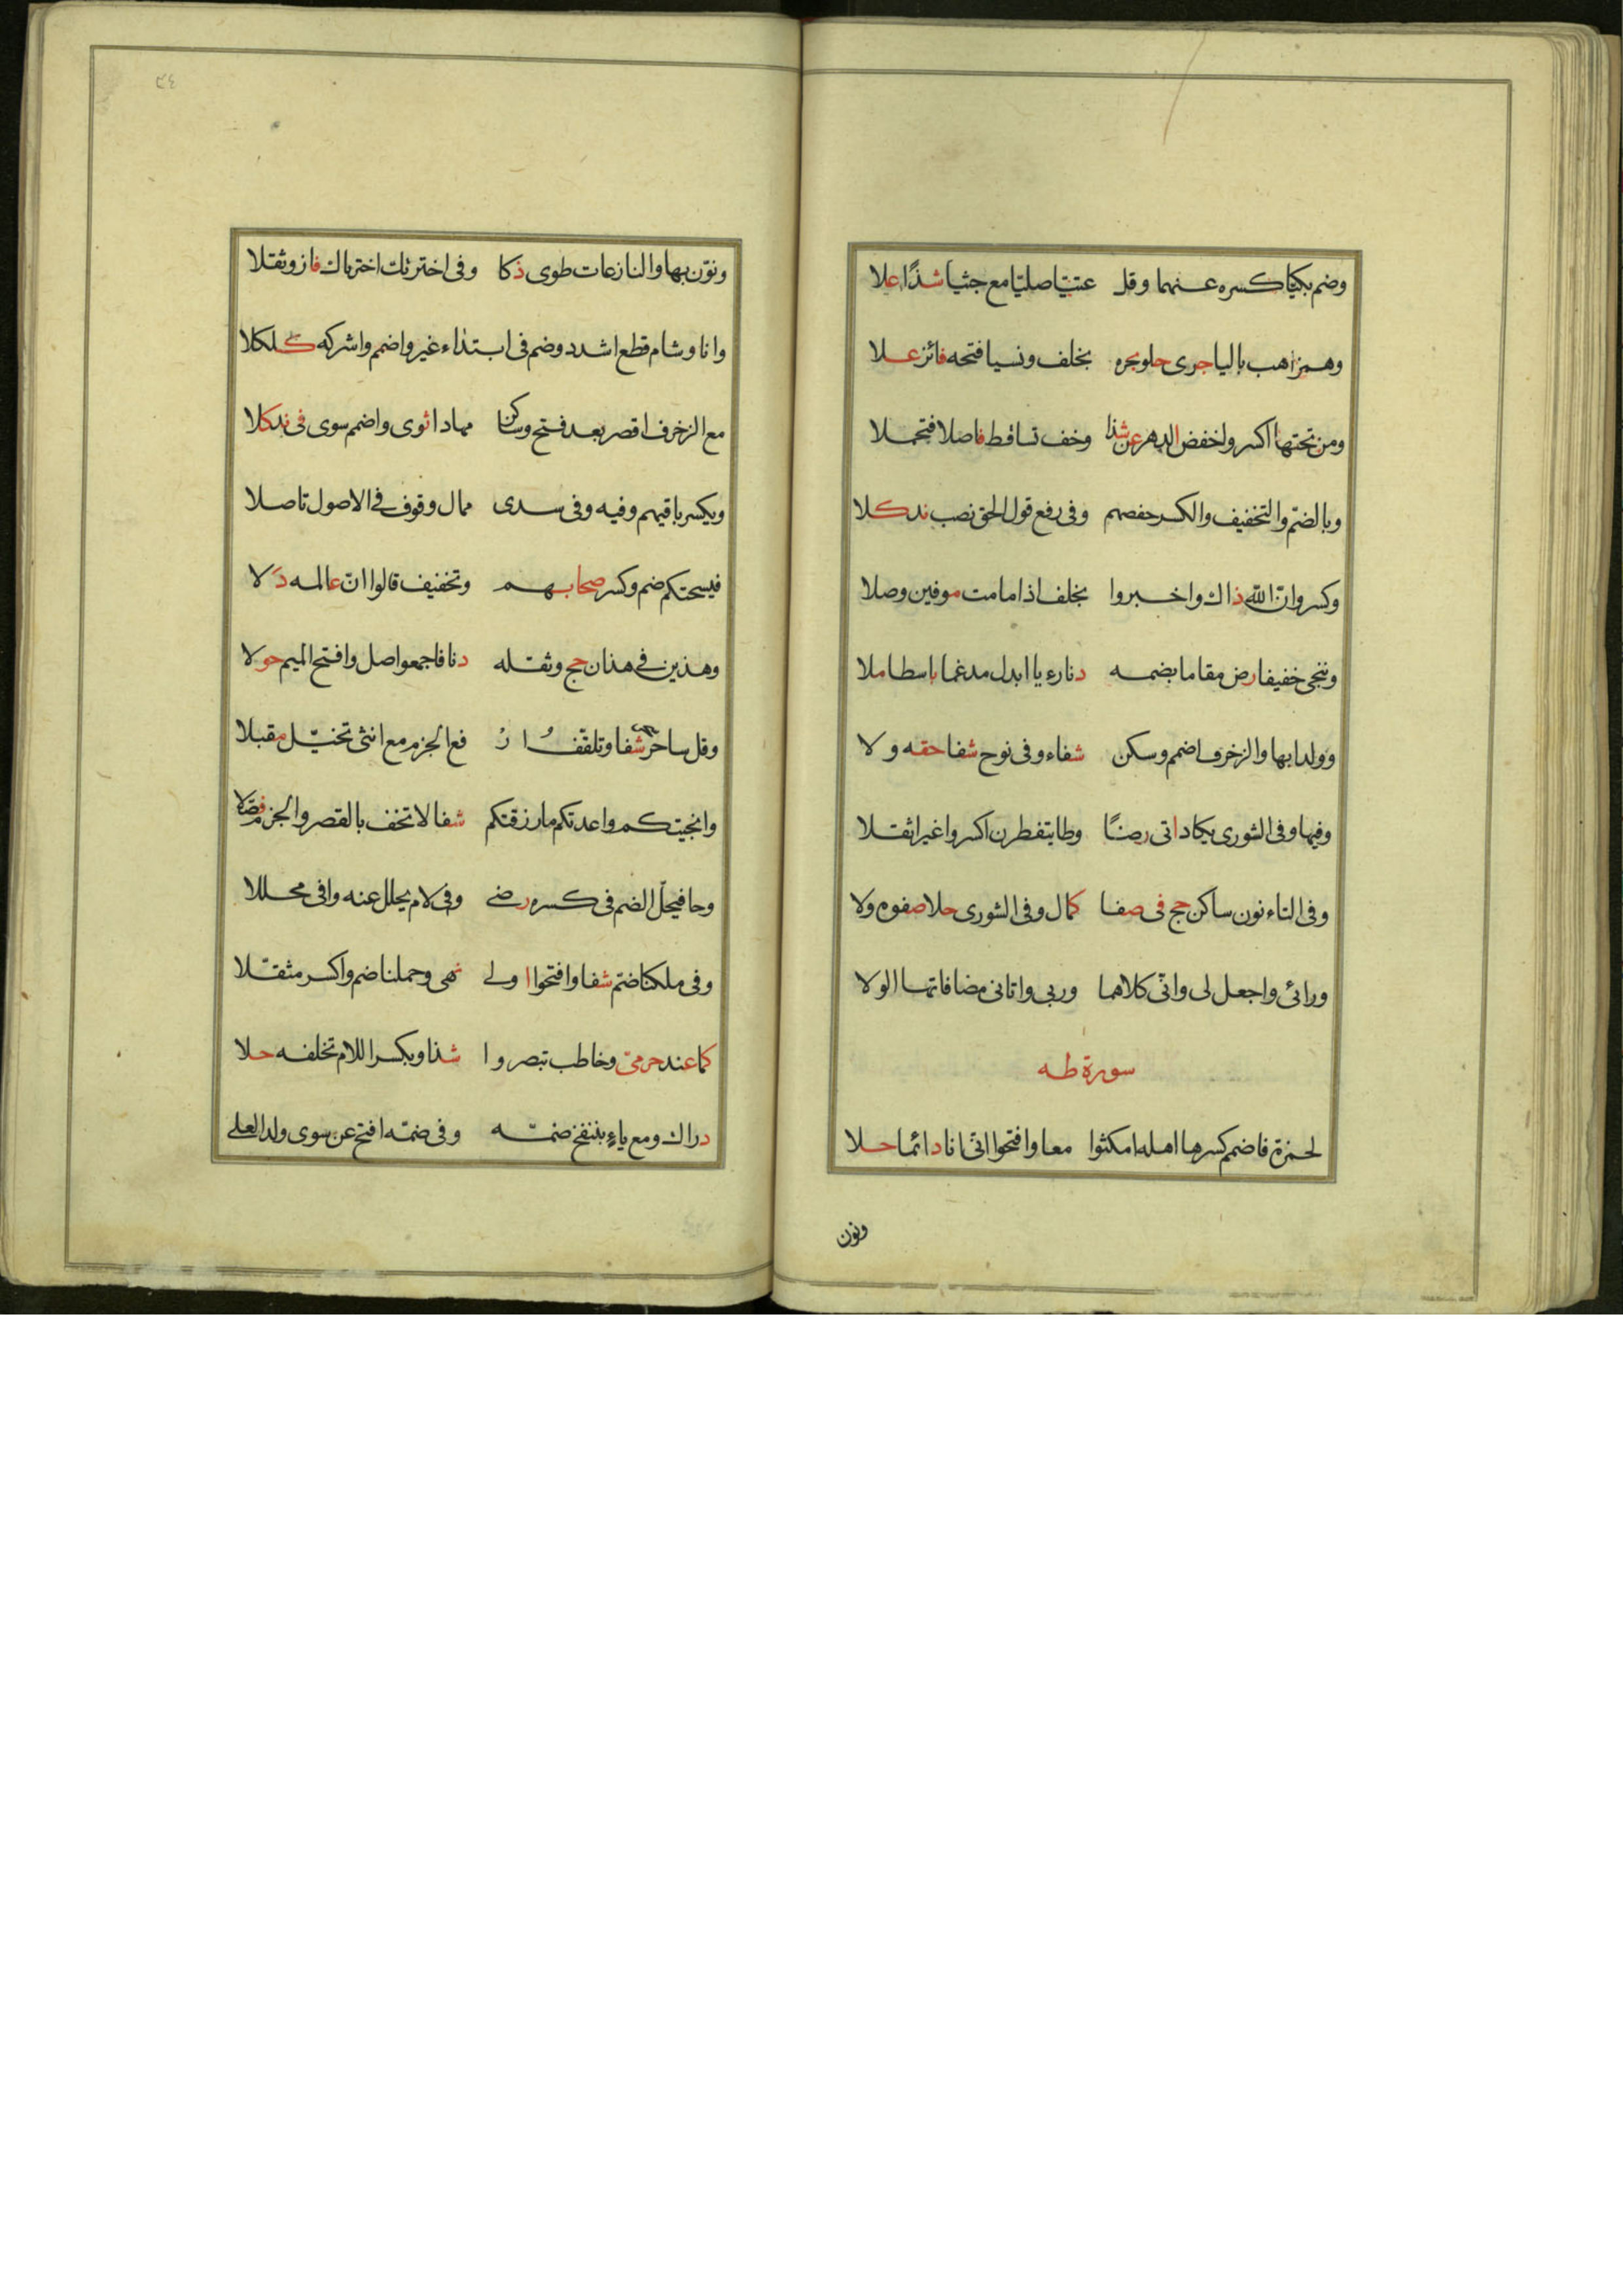 وضم بكيا كسره عنهما وقل عتيّا صليّا مع جثيا شذًا علا
وهمز اهب باليا جرى حلو بحره بخلف ونسيا فتحه فائز علا
ومن تحتها اكسر واخفض الدهر عن شذا وخف تساقط فاصلا فتحملا
وبالضمّ والتخفيف والكسر حفصهم وفى رفع قول الحق نصب ند كلا
وكسر وانّ الله ذاك واخبروا بخلف اذا ما مت موفين وصلا
وننجى خفيفا رض مقاما بضمه دنا رءيا ابدل مدغما باسطا ملا
وولدا بها والزخرف اضمم وسكن شفاء وفى نوح شفا حقه ولا
وفيها وفى الشورى يكاد اتى رضًا وطا يتفطرن اكسروا غير اثقلا
وفى التاء نون ساكن حج فى صفا كمال وفى الشورى حلا صفوه ولا
ورائى واجعل لى وانّى كلاهما وربى واتانى مضافاتها الولا
سورة طه
لحمزة فاضمم كسرها اهله امكثوا معا وافتحوا انّى انا دائما حلا
ونون
٣٤
ونوّن بها والنازعات طوى ذكا وفى اخترتك اخترناك فاز وثقلا
وانا وشام قطع اشدد وضم فى ابتداء غير واضمم واشركه كلكلا
مع الزخرف اقصر بعد فتح وساكن مهادا ثوى واضمم سوى فى ند كلا
ويكسر باقيهم وفيه وفى سدى ممال وقوف فى الاصول تاصلا
فيسحتكم ضم وكسر صحابهم وتخفيف قالوا انّ عالمه دلا
وهذين فى هذان حج وثقله دنا فاجمعوا صل وافتح الميم حولا
وقل ساحر سحر شفا وتلقّفُ ارْ فع الجزم مع انثى تخيّل مقبلا
وانجيتكم واعدتكم ما رزقتكم شفا لا تخف بالقصر والجزم فصّلا
وحا فيحلّ الضم فى كسره رضى وفى لام يحلل عنه وافى محللا
وفى ملكنا ضمّ شفا وافتحوا اولى نهى وحملنا ضم واكسر مثقّلا
كما عند حرمىّ وخاطب تبصروا شذا وبكسر اللام تخلفه حلا
دراك ومع ياءٍ بننفخ ضمّه وفى ضمّه افتح عن سوى ولد العلى